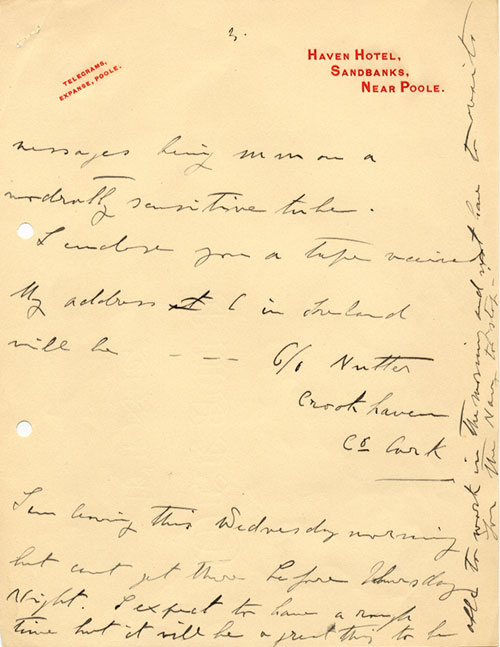 3.
TELEGRAMS,
EXPANSE, POOLE.
HAVEN HOTEL,
SANDBANKS,
NEAR POOLE.
messages being on a
sensitive tube.
I enclose you a tape received
My address in Ireland
will be - - - C/o Nutter
Crookhaven
Co Cork
I am leaving this Wednesday morning
but cant get there before Thursday
Night. I expect to have a rough
time but it will be a great thing to be
able to work in the morning and not have to wait
for the Navy to stop -